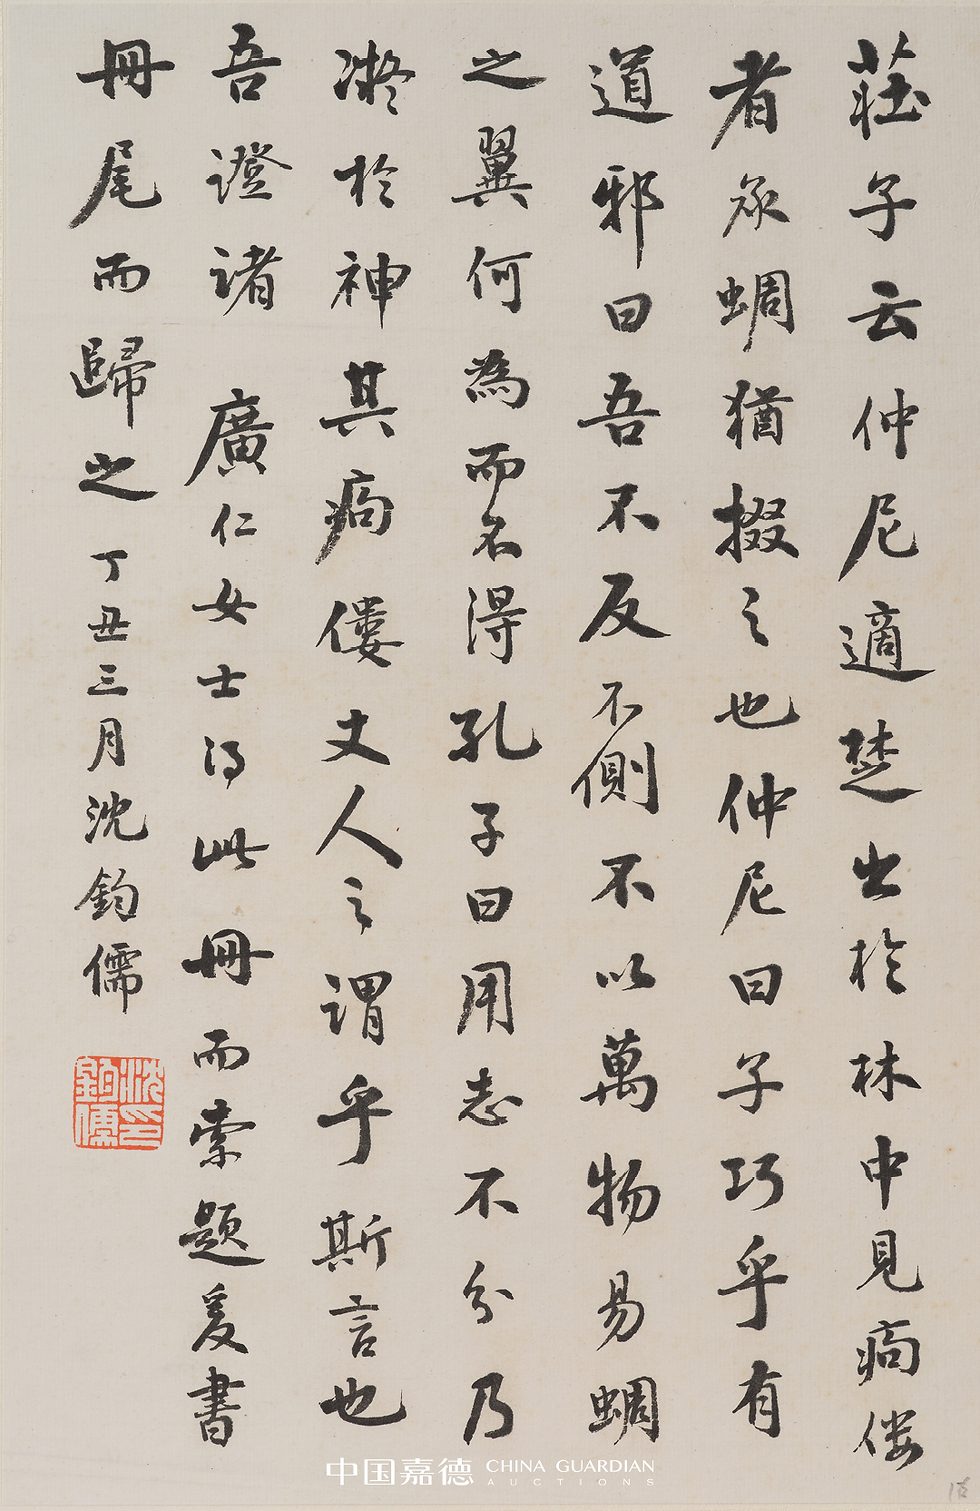 莊子云仲尼適楚出於林中見痀僂
者承蜩猶掇之也仲尼曰子巧乎有
道邪曰吾不反不側不以萬物易蜩
之翼何為而不得孔子曰用志不分乃
凝於神其痀僂丈人之謂乎斯言也
吾證諸 廣仁女士得此冊而索題爰書
冊尾而歸之 丁丑三月沈鈞儒
沈鈞儒印
中国嘉德 CHINA GUARDIAN
AUCTIONS